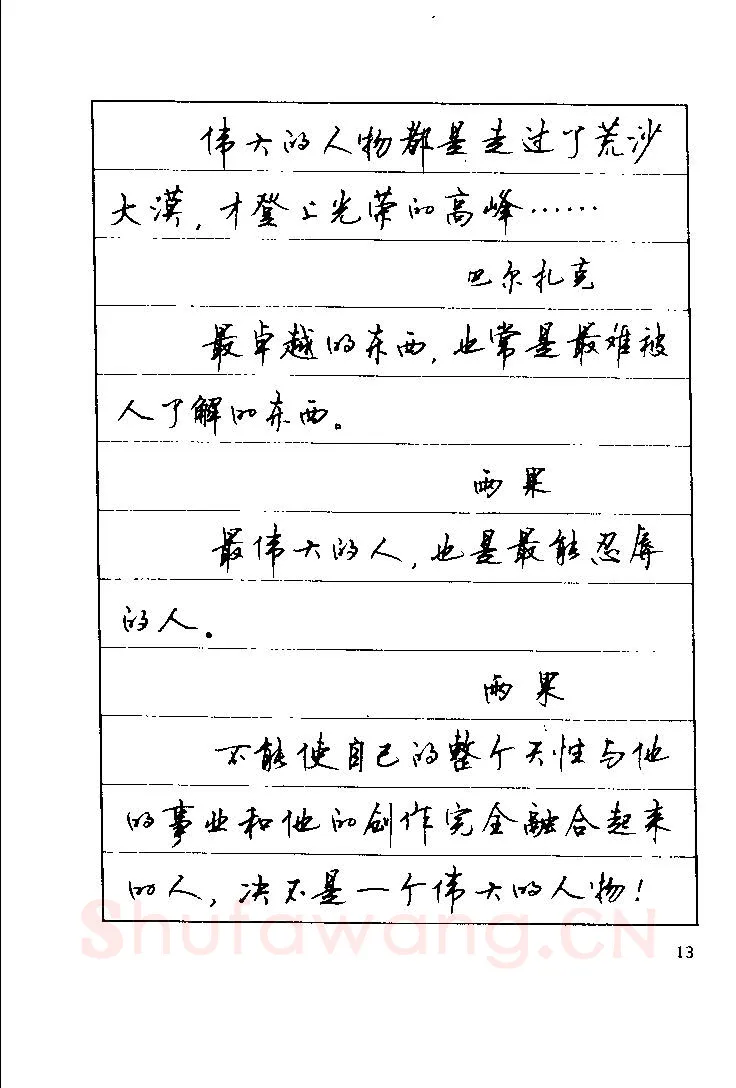 伟大的人物都是走过了荒沙
大漠，才登上光荣的高峰……
巴尔扎克
最卓越的东西，也常是最难被
人了解的东西。
雨果
最伟大的人，也是最能忍辱
的人。
雨果
不能使自己的整个天性与他
的事业和他的创作完全融合起来
的人，决不是一个伟大的人物！
Shufawang.CN
13